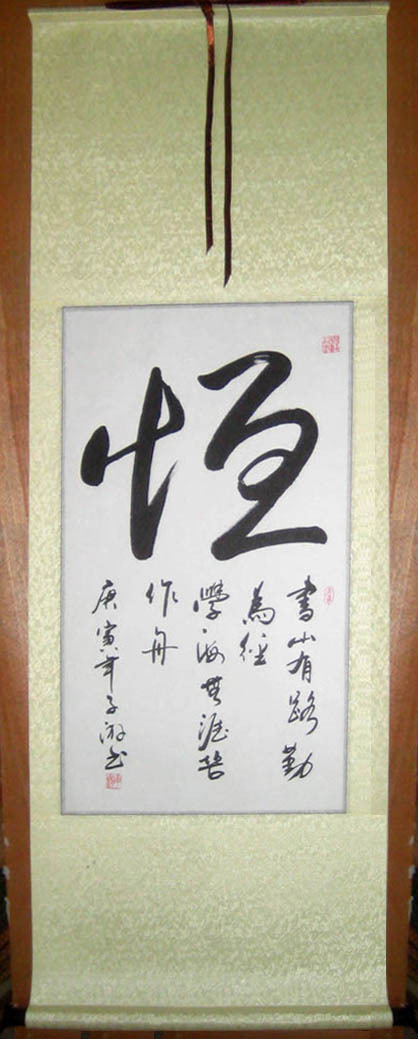 恒
書山有路勤
為經
學海無涯苦
作舟
庚寅年子淑书